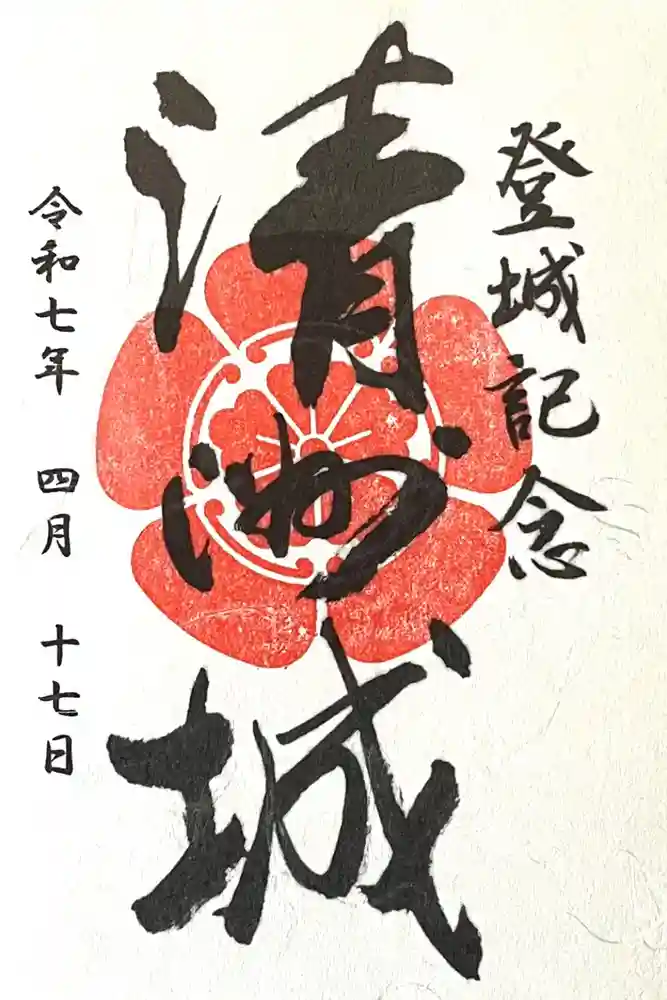 登城記念
清洲城
令和七年 四月 十七日